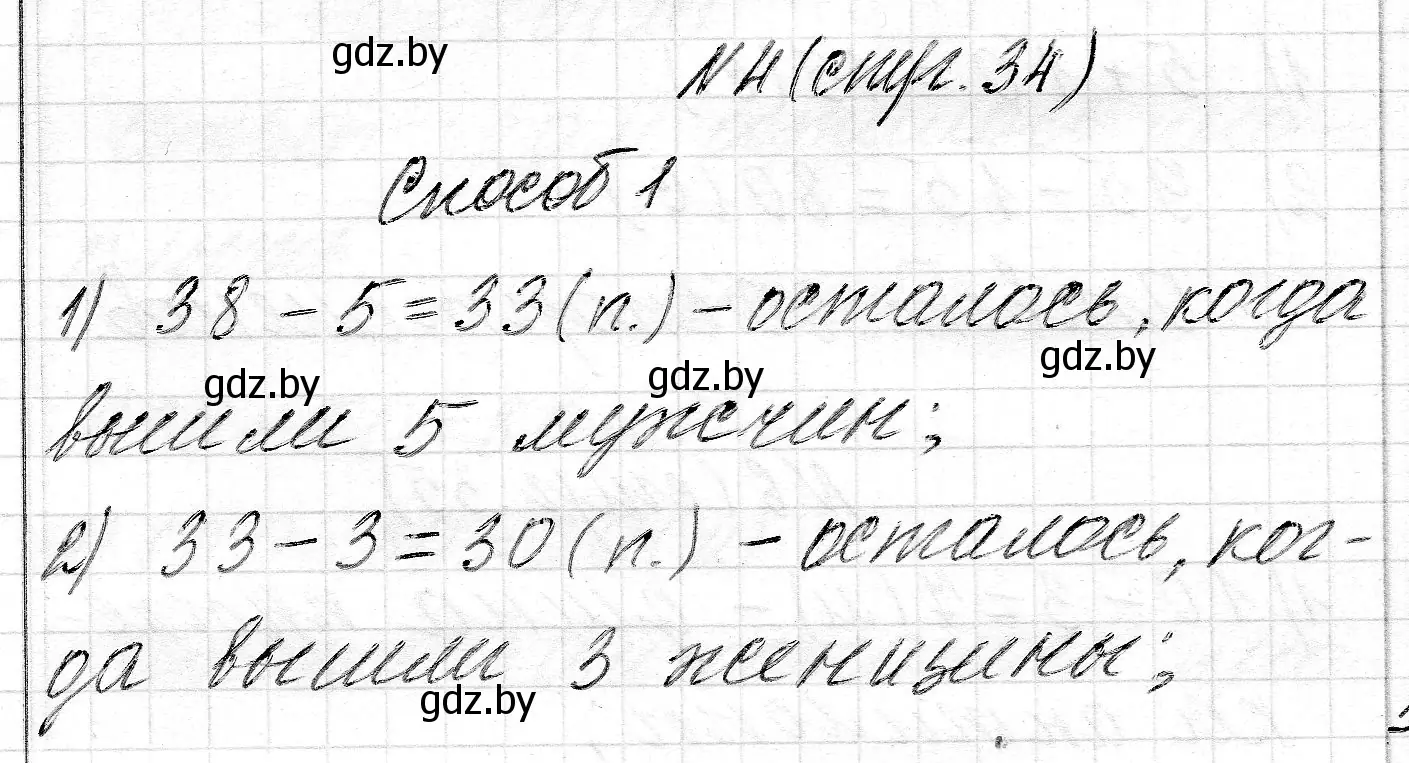 gdz.by
N 4 (стр. 34)
Способ 1
1) 38 - 5 = 33 (п.) - осталось, когда
gdz.by gdz.by gdz.by
вышли 5 мужчин;
2) 33 - 3 = 30 (п.) - осталось, ког-
да вышли 3 женщины;
gdz.by